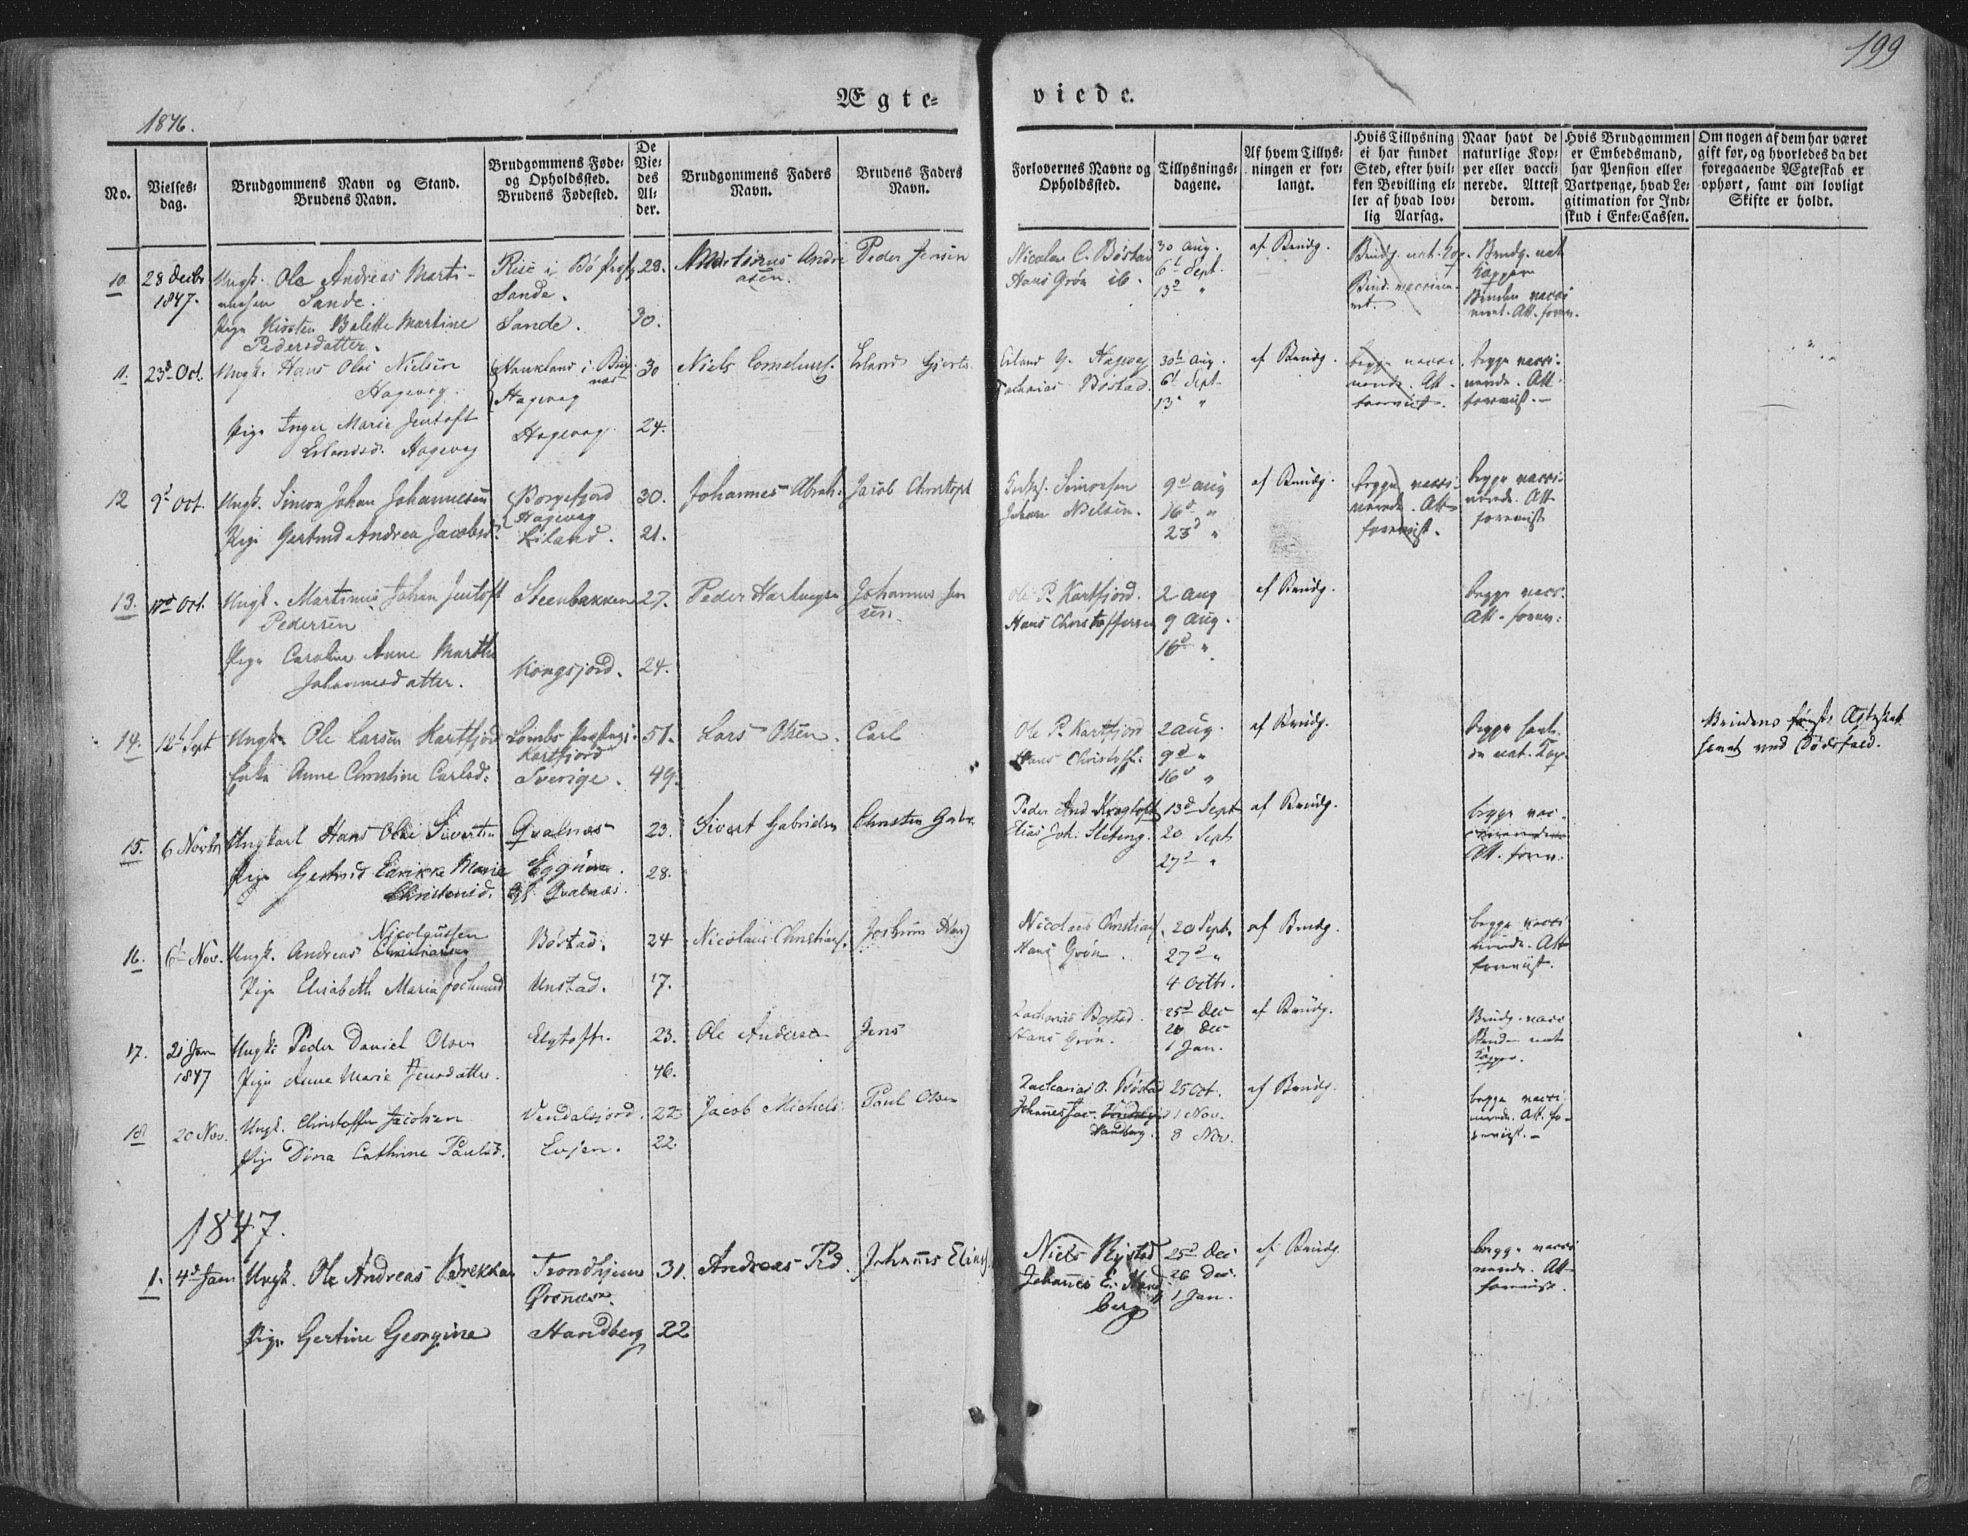 199
Ægte=
viede.
1846.
No.
Vielses=
dag.
Brudgommens Navn og Stand.
Brudens Navn.
Brudgommens Føde=
og Opholdssted.
Brudens Fødested.
De
Vie=
des
Al=
der.
Brudgommens Faders
Navn.
Brudens Faders
Navn.
Forlovernes Navne og
Opholdssted.
Tillysnings=
dagene.
Af hvem Tillys=
ningen er for=
langt.
Hvis Tillysning
ei har fundet
Sted, efter hvil=
ken Bevilling el=
ler af hvad lov=
lig Aarsag.
Naar havt de
naturlige Kop=
per eller vacci=
nerede. Attest
derom.
Hvis Brudgommen
er Embedsmand,
har Pension eller
Vartpenge, hvad Le=
gitimation for Ind=
skud i Enke=Cassen.
Om nogen af dem har været
gift før, og hvorledes da det
foregaaende Ægteskab er
ophørt, samt om lovligt
Skifte er holdt.
10. 28 Decbr
1847.
Ungk. Ole Andreas Marti-
nusen Sande.
Pige Kirsten Balette Martine
Pedersdatter.
Rise i Bø
Sande.
Sande.
28.
30.
Martinus Andre
asen.
Peder Jensen
Nicolai C. Bøstad
Hans Grøn ib.
30 Aug.
6t Sept.
13d "
af Brudg.
Brudg. nat. Kop.
Brud. vaccine-
ret.
Brudg. nat
Kopper
Bruden vacci
neret. Att. forev.
11. 23d Oct.
Ungk. Hans Olai Nielsen
Hagevog.
Pige Inger Marie Jentoft
Erlandsd. Hagevog
Haukland i
Hagevog
Hagevog.
30
24.
Niels Corneliuss.
Erland Gjerts.
Erland G. Hagevog
Zacharias Bøstad.
30t Aug.
6t Sept
13 "
af Brudg.
begge vacci
nerede. Att.
foreviist.
begge vacci-
nerede. Att.
foreviist.
12 9d Oct.
Ungk. Simon Johan Johannesen
Pige Gertrud Andrea Jacobsd.
Borgefjord
Hagevog
Eiland.
30.
21.
Johannes Abrah.
Jacob Christoph
Simonsen
Johan Nielsen.
9d Aug
16d "
23d "
af Brudg.
begge vacci-
nerede. Att
foreviist.
begge vacci-
nerede. Att
foreviist
13. Oct.
Ungk. Martinus Johan Jentoft
Pedersen
Pige Caroline Anne Martha
Johannesdatter.
Steenbakken
Kongsjord.
27.
24.
Peder Hartvigsen
Johannes Jen
sen.
Ole P. Kartfjord.
Hans Christoffersen
2 Aug
9 Aug.
16d "
af Brudg.
begge vacc.
Att. forev.
14. 12t Sept
Ungk. Ole Larsen Kartfjord
Enke Anne Christine Carlsd.
Lombs
Kartfjord
Sverige.
51.
49.
Lars Olsen.
Carl
Ole P. Kartfjord
Hans Christoff.
2 Aug.
9d "
16d "
af Brudg.
begge havt
de nat. Kop.
Brudens første Ægteskab
hævet ved Dødsfald.
15. 6 Novbr
Ungkarl Hans Olai Sivertsen
Pige Gertrud Marie
Christensd.
Qvalnæs
Eggum.
Qvalnæs.
23.
28.
Sivert Gabrielsen
Christen
Peder And. Kragtoft
Elias Joh. Steteng.
13d Sept
20 Sept
27d "
af Brudg.
begge vac-
Att. forev.
16. 6t Nov.
Ungk. Andreas Nicolaussen
Pige Elisabeth Maria Jochumsd
Bøstad.
Unstad.
24
17.
Nicolaus Christians.
Jochum
Nicolaus Christian
Hans Grøn.
20 Sept.
27d "
4 Octbr.
af Brudg.
begge vacci
nerede. Att
foreviist.
17. 21 Jan
1847
Ungk. Peder Daniel Olsen
Pige Anne Marie Jensdatter.
Elgtoft.
23.
46.
Ole Andersen
Jens
Zacharias Bøstad.
Hans Grøn.
25d Dec
26 Dec
1 Jan.
af Brudg.
Brudg. vacc
Brud. nat.
Kopper.
18 20 Nov.
Ungk. Christoffer Jacobsen
Pige Dina Cathrine Paulsd.
Vendalsjord.
Evjen.
22
22
Jacob Michels.
Paul Olsen
Zacharias O. Bøstad
Johannes Jac.
Handberg.
25 Oct.
1 Nov.
8 Nov.
af Brudg.
begge vacci
nerede. Att. fo-
reviist.
1847.
1. 4d Jan
Ungk. Ole Andreas Brekken
Pige Gertine Georgine
Trondhjem
Ørsnæs.
Handberg
31.
22
Andreas Pd.
Johannes Elias
Niels Rystad
Johannes E. Hand
berg
25d Dec
26 Dec.
1 Jan.
af Brudg.
begge vacci
nerede. Att
foreviist.